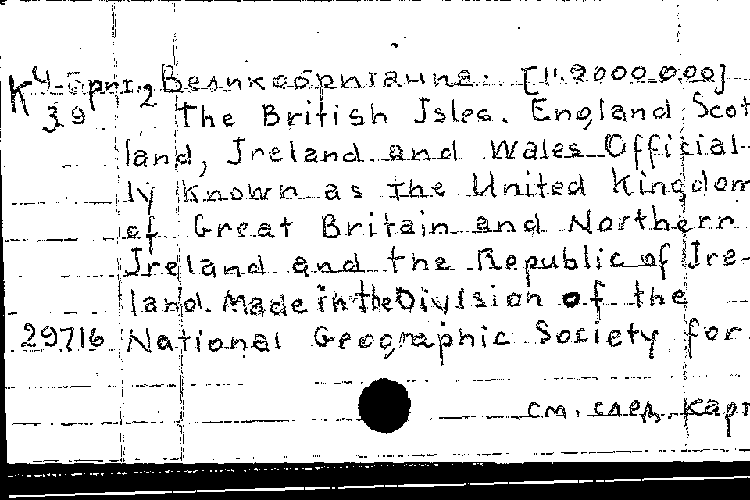 К 4-Брит.2 Великобритания. [1:2000.000]
39 The British Isles. England Scot
land, Ireland and Wales Official-
ly known as the United Kingdom
of Great Britain and Northern
Ireland and the Republic of Ire-
land. Made in the Division of the
29716 National Geographic Society for
см. след. карт